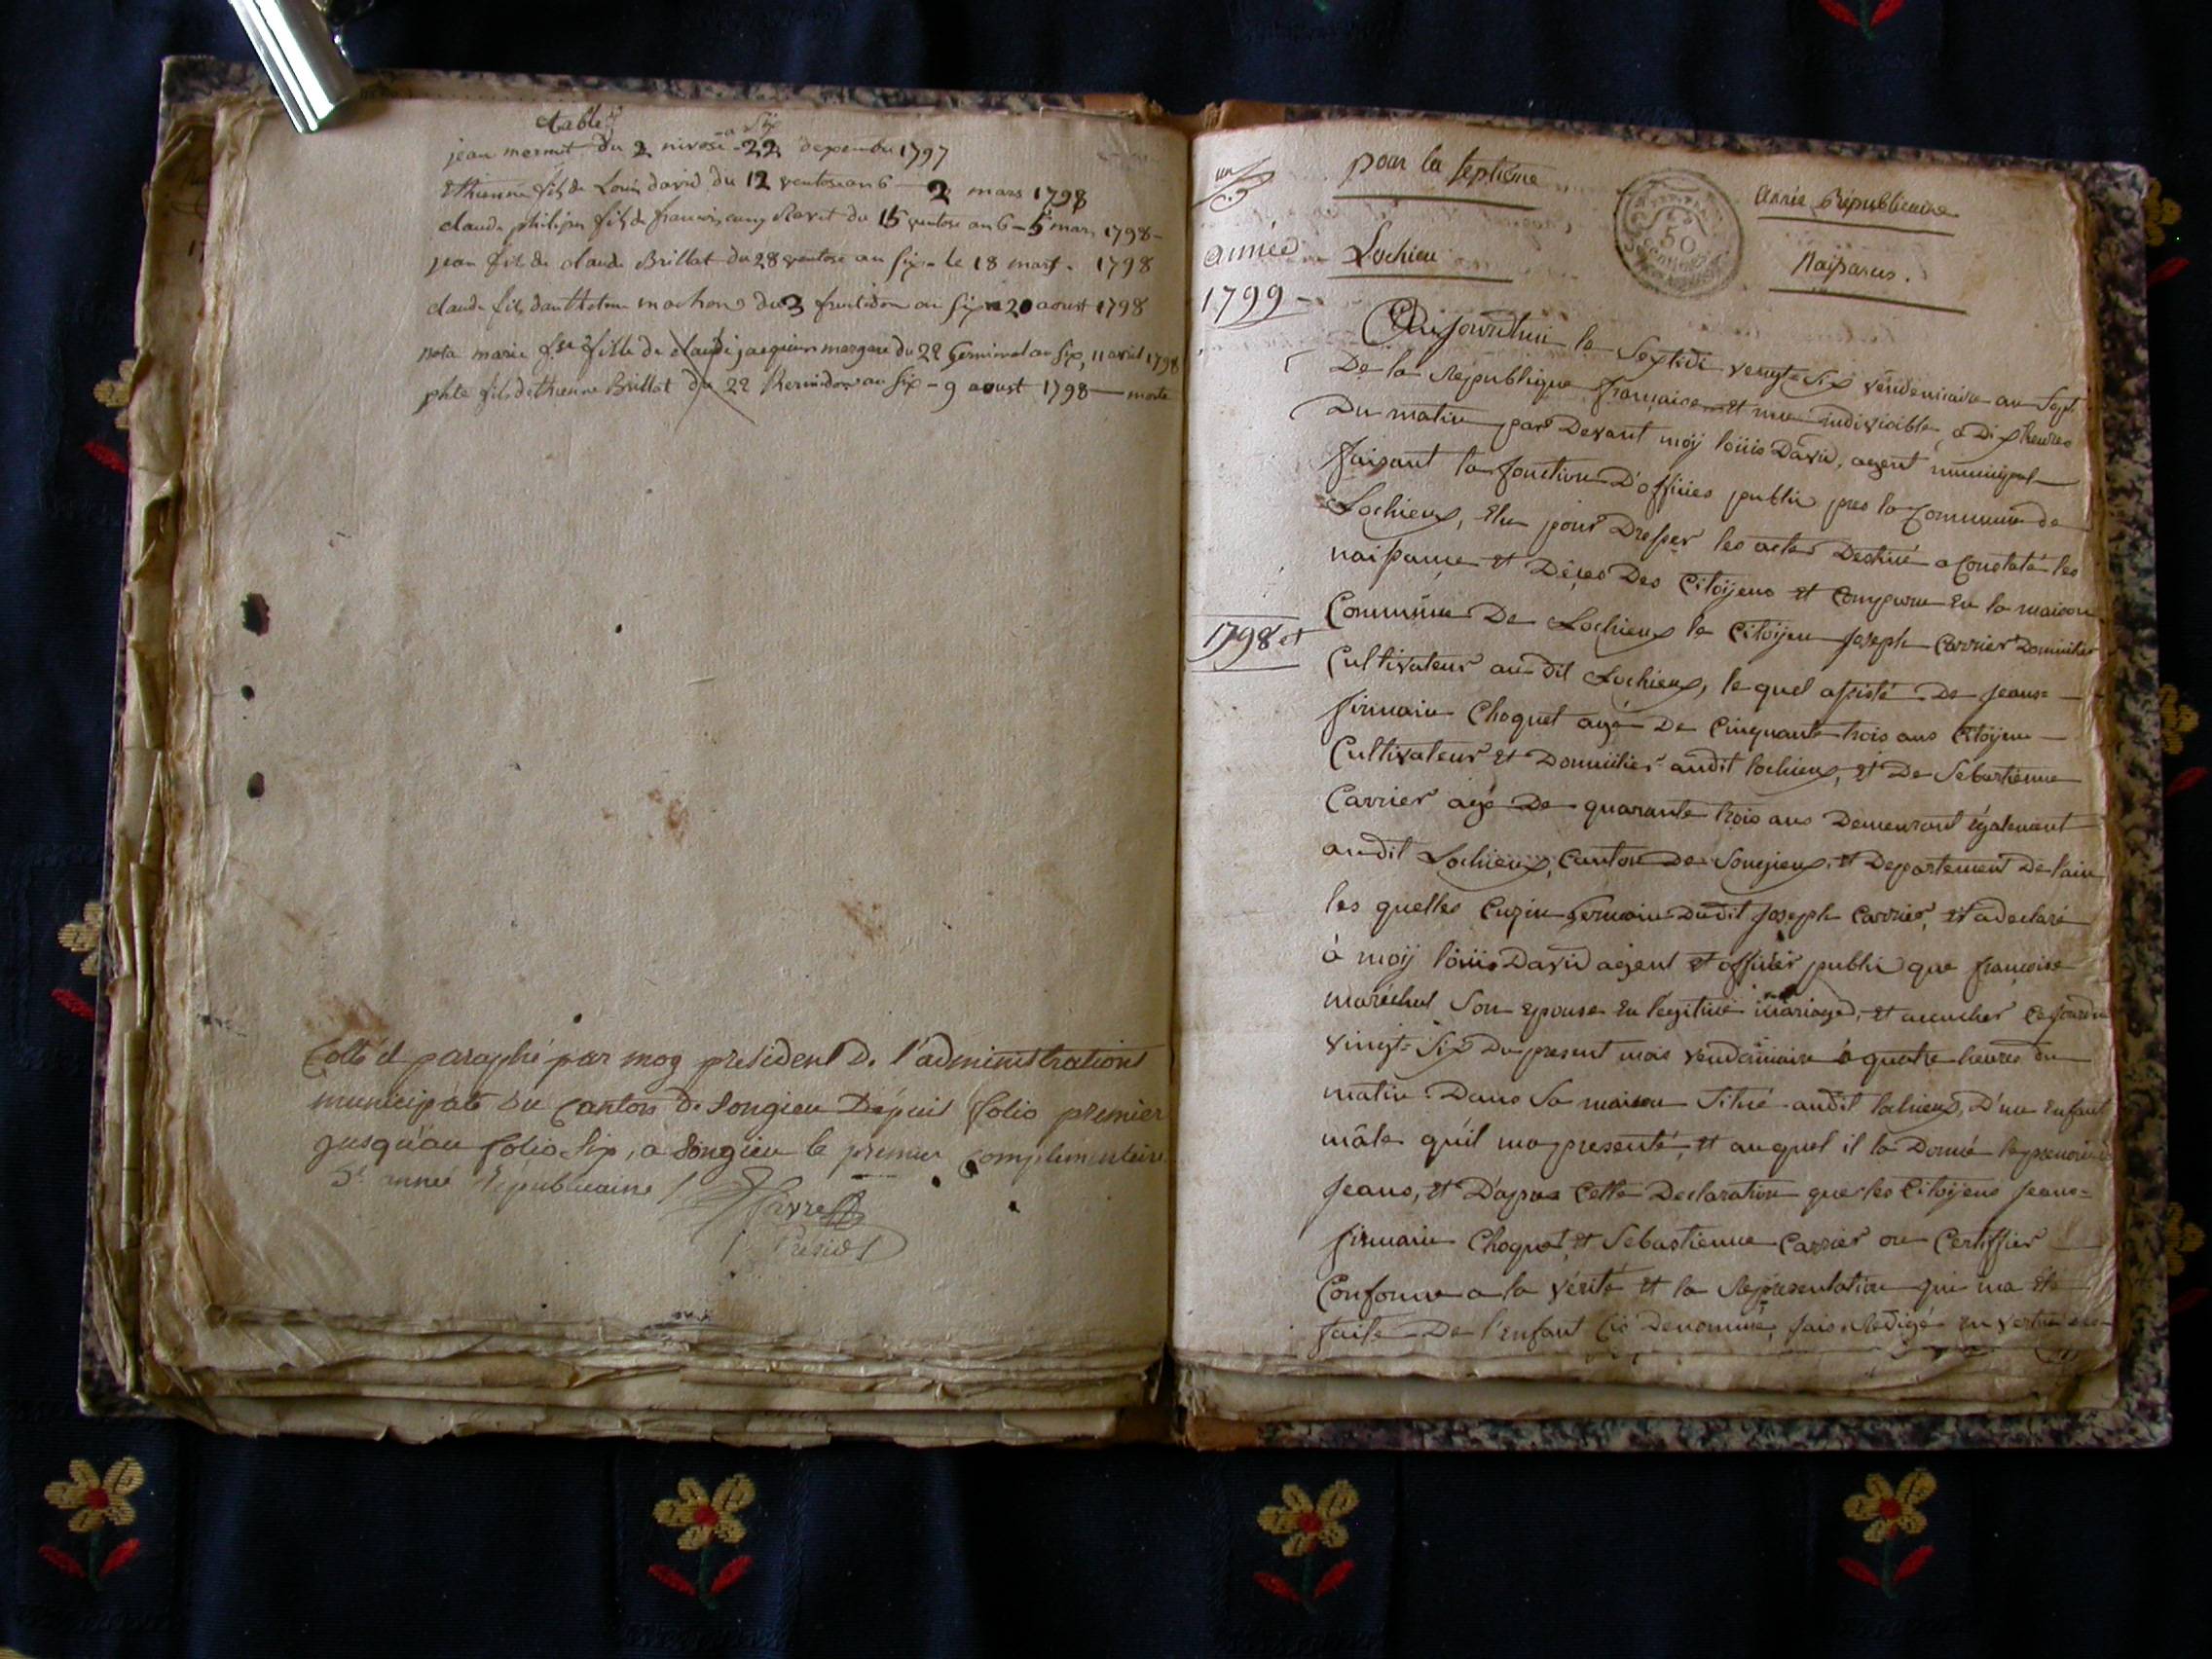 table
jean mermet du 2 nivose a six 22 decembre 1797
Ethienne fils de Louis david du 12 ventose an 6 2 mars 1798
claude philipe fils de francois Ravet du 15 ventose an 6 - 5 mars 1798 -
jean fils de claude Brillat du 28 ventose an six - le 18 mars - 1798
claude fils danthelme machon du 3 fructidor an six 20 aoust 1798
nota marie fse fille de claude jacquin du 22 Germinal an six, 11 avril 1798
phte fils dethienne Brillat du 22 thermidor an six - 9 aoust 1798 — morte
Cotté et paraphé par moy président De l'administration
municipale du Canton de Songieu Depuis folio premier
jusqu'au folio Six, a Songieu le premier Complementaire
5e année Républicaine /
Présidt
un
pour la Septiéme
année Républicaine
50
année
Lochieu
Naissances.
1799 -
Aujourdhui le Septidi vengt-Six vendemiaire an Sept
De la République française et une indivisible, a Dix heures
Du matin par Devant moÿ loüis David, agent municipal
faisant la fonction D'officier public pres la Commune de
Lochieux, elu pour Dresser les actes Destiné a Constaté les
naissance et Déçes Des Citoÿens et Comparu En la maison
Commune De Lochieux le Citoÿen Joseph Carrier Domicilier
1798 et
Cultivateur au dit Lochieux, le quel assisté De Jeans=
firmain Choquet agé De Cinquante trois ans Citoÿen
Cultivateur et Domicilier audit lochieux, et De Sebastienne
Carrier agé De quarante trois ans Demeurant également
audit Lochieux, Canton De Songieux, et Departement De l'ain
les quelles Cuzin Germain Dudit Joseph Carrier, et a declaré
à moÿ loüis David agent et officier public que françoise
maréchal Son Epouse En légitime mariage, et accoucher
vingt-Six Du present mois vendemiaire à quatre heures du
matin Dans Sa maison Situé audit lochieux, D'un Enfant
mâle qu'il ma presenté, et auquel il la Donné le prenom de
Jeans, et D'apres Cette Declaration que les Citoÿens Jeans=
firmain Choquet, et Sebastienne Carrier ont Certiffier
Conforme a la vérité et la Représentation qui ma été
faite De l'enfant Denommé, jais Rédigé en vertu des